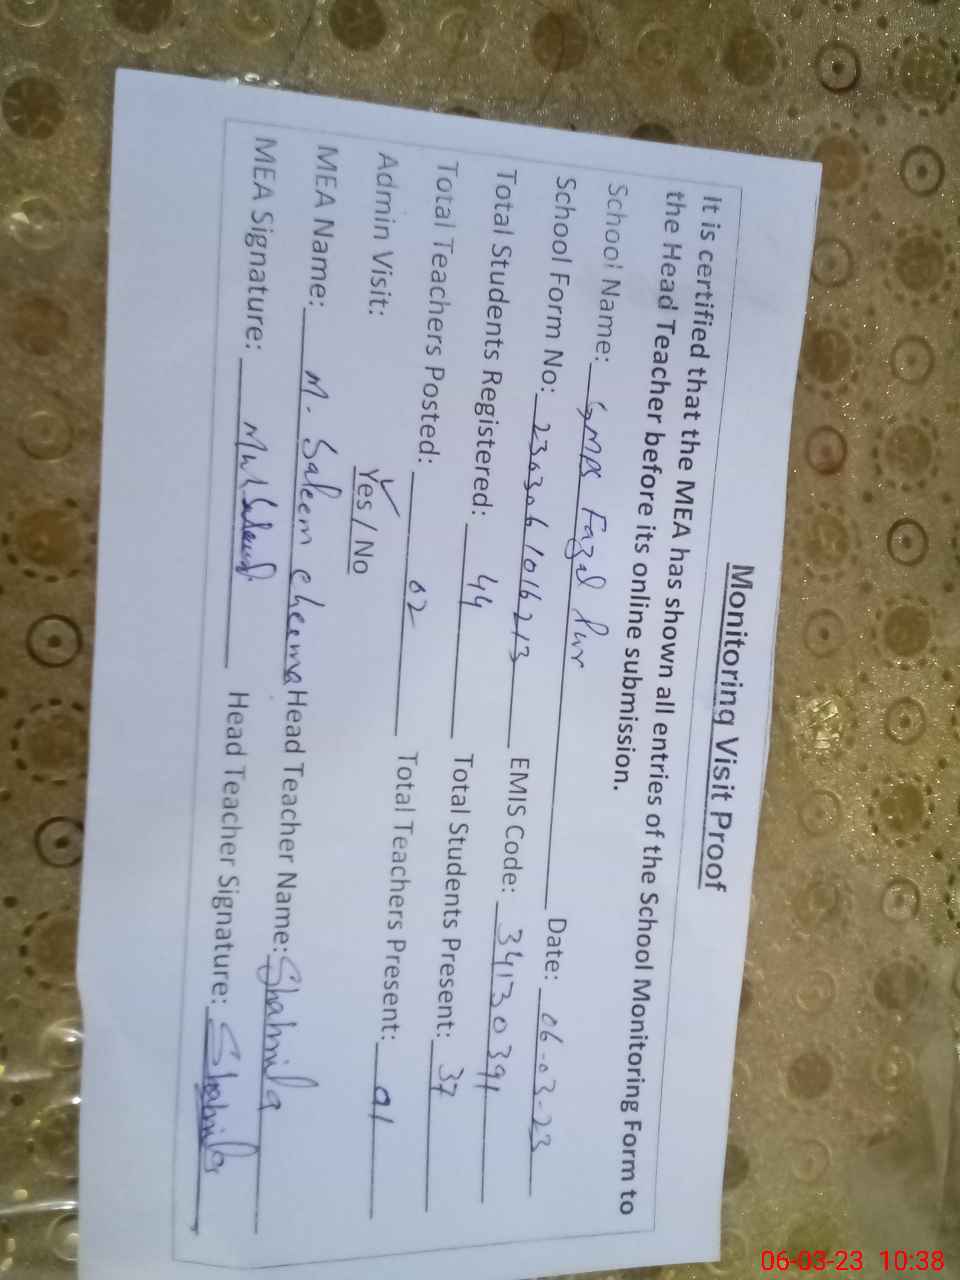 Monitoring Visit Proof
It is certified that the MEA has shown all entries of the School Monitoring Form to
the Head Teacher before its online submission.
School Name: GMPS Fazal Pur Date: 06-03-23
School Form No: 2303061016213 EMIS Code: 34130391
Total Students Registered: 44 Total Students Present: 37
Total Teachers Posted: 02 Total Teachers Present: 01
Admin Visit: Yes / No
MEA Name: M. Saleem cheema Head Teacher Name: Shahnila
MEA Signature: Head Teacher Signature: Shahnila
06-03-23 10:38